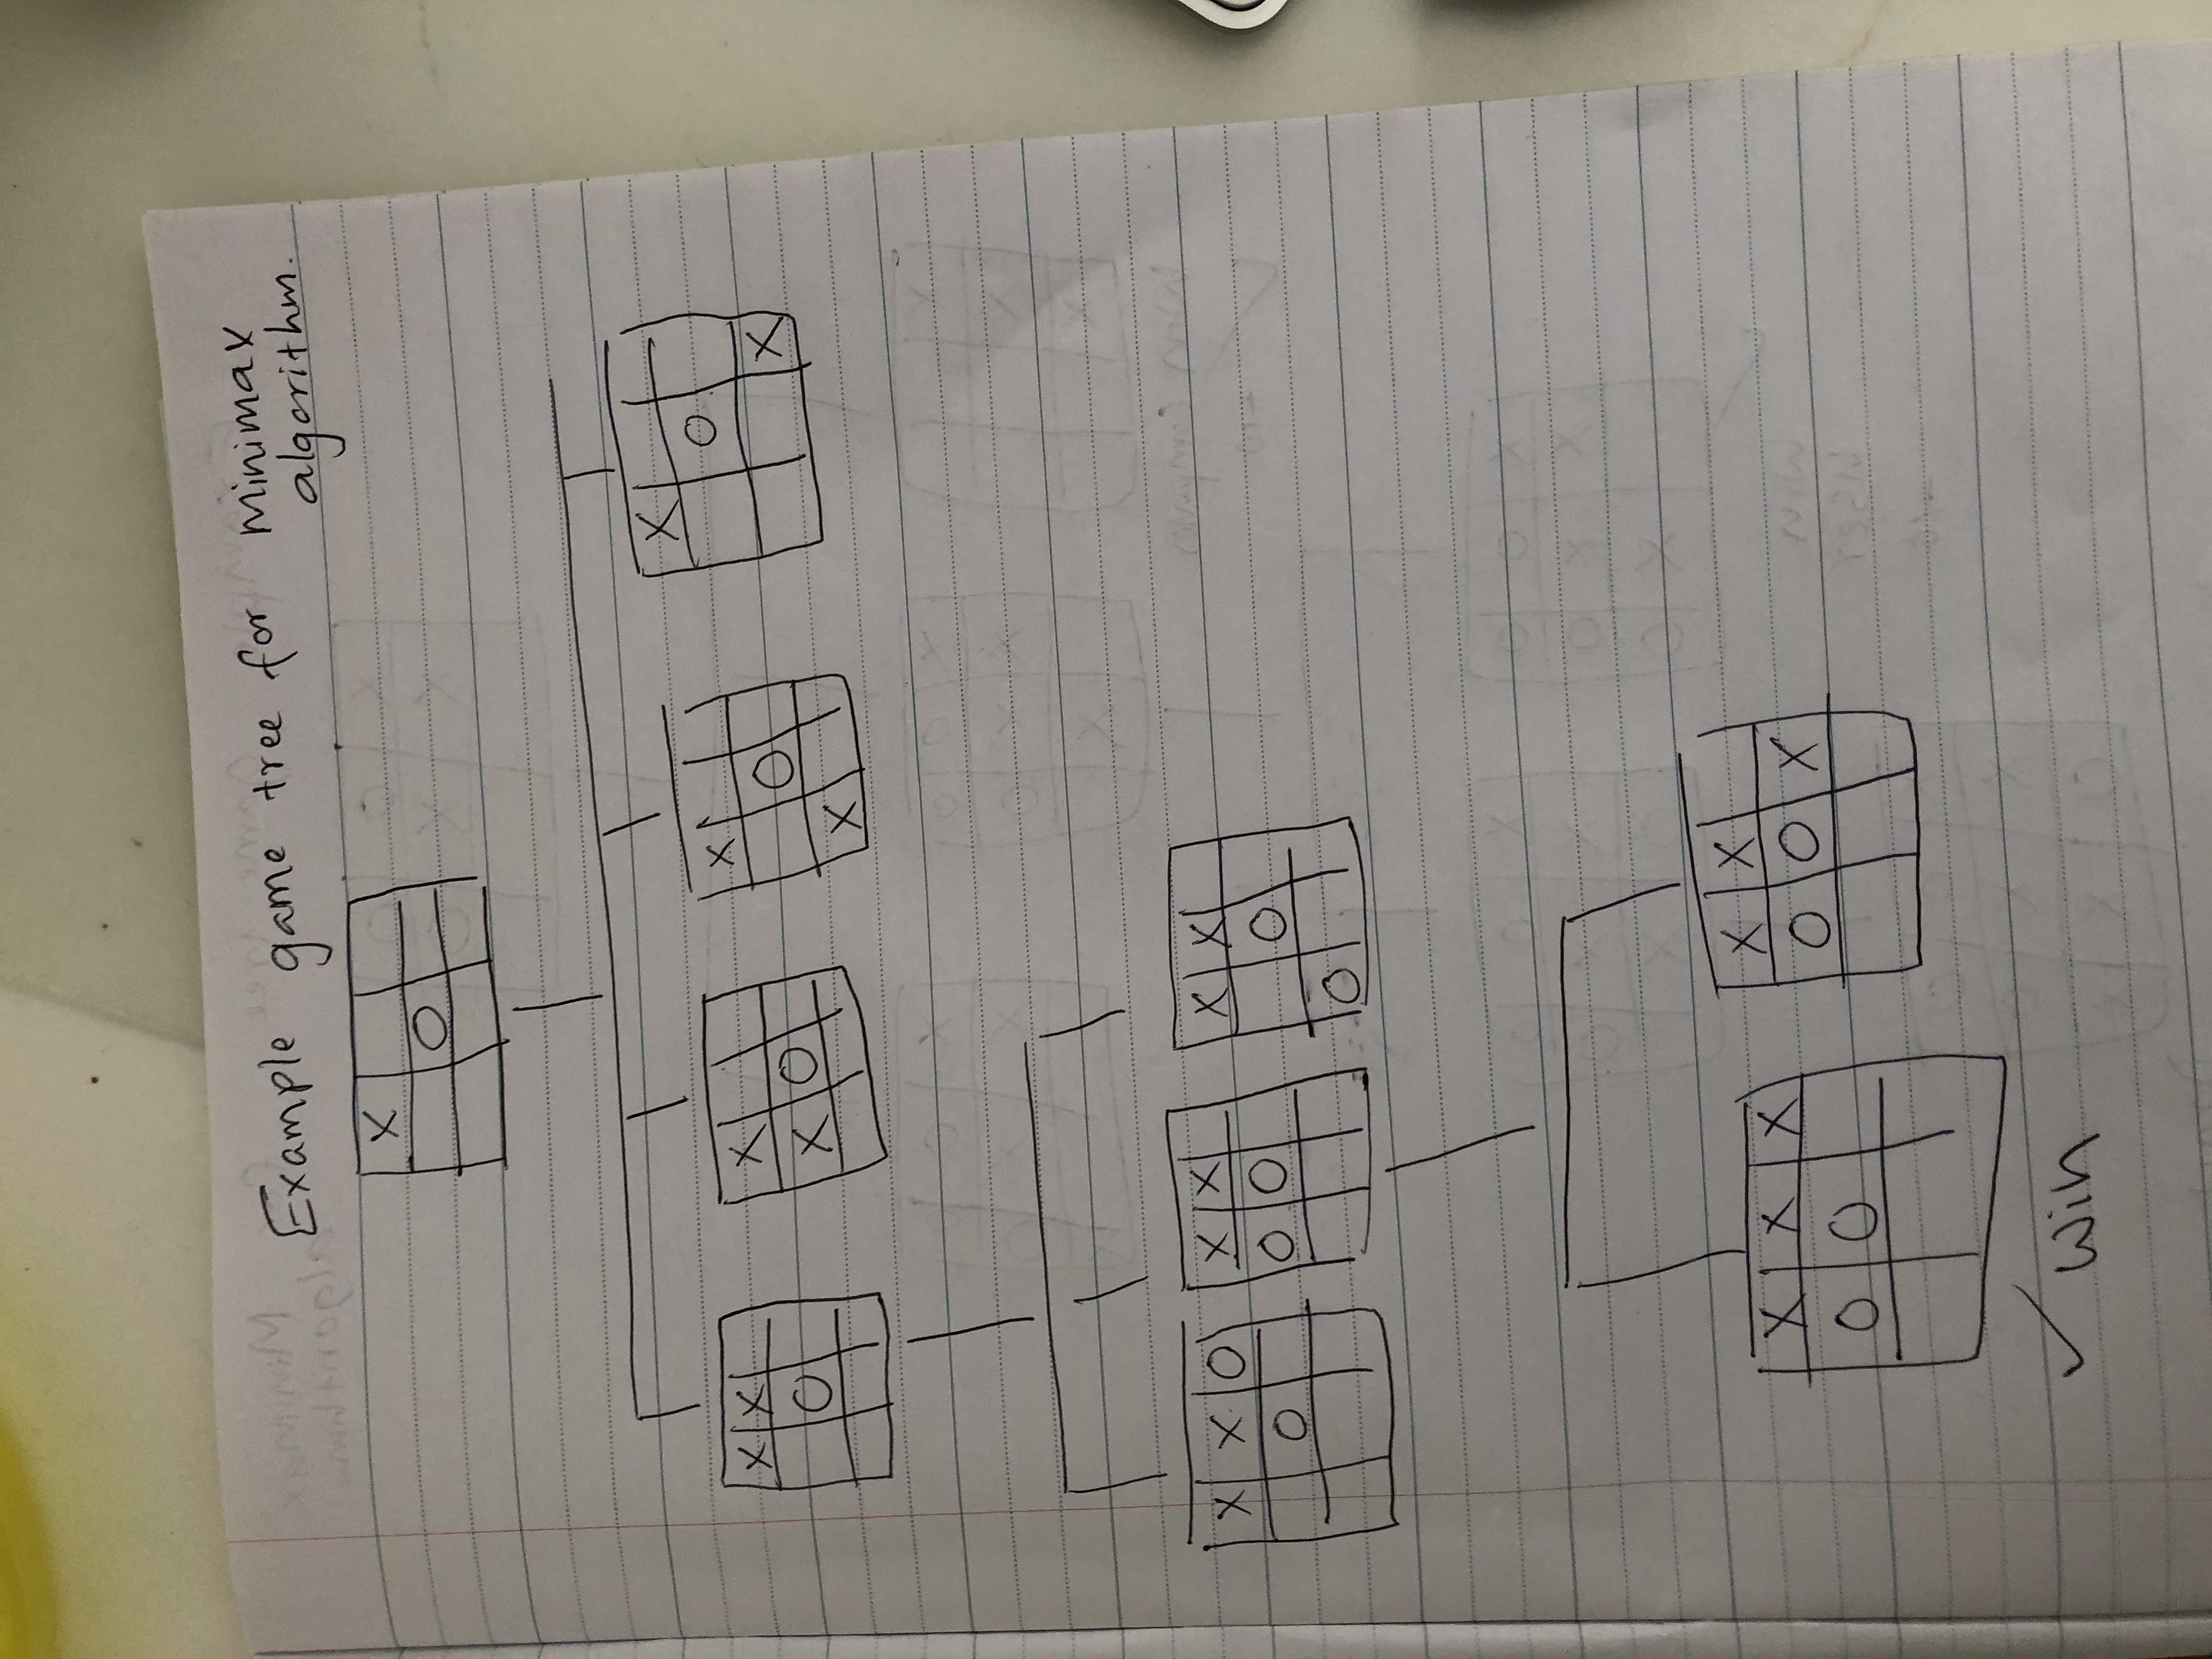 Example game tree for minimax
algorithm.
X
O
X X
O
X
X O
X
O
X
X
O
X
X X O
O
X X
O O
X X
O
O
X X X
O O
X X
O O X
✓ Win